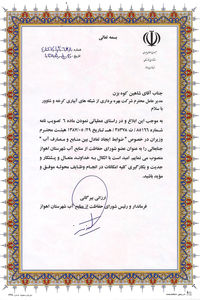 بسمه تعالی
جناب آقای شاهین کوه بزن
مدیر عامل محترم شرکت بهره برداری از شبکه های آبیاری کرخه و شاوور
با سلام
به موجب این ابلاغ و در راستای عملیاتی نمودن ماده ۶ تصویب نامه
هیئت محترم
وزیران در خصوص " ضوابط ایجاد تعادل بین منابع و مصارف آب "
جنابعالی را به عنوان عضو شورای حفاظت از منابع آب شهرستان اهواز
منصوب می نماییم امید است با اتکال به خداوند متعال و پشتکار و
جدیت و بکارگیری کلیه امکانات در انجام وظایف محوله موفق و
مؤید باشید.
فرماندار و رئیس شورای حفاظت از منابع آب شهرستان اهواز